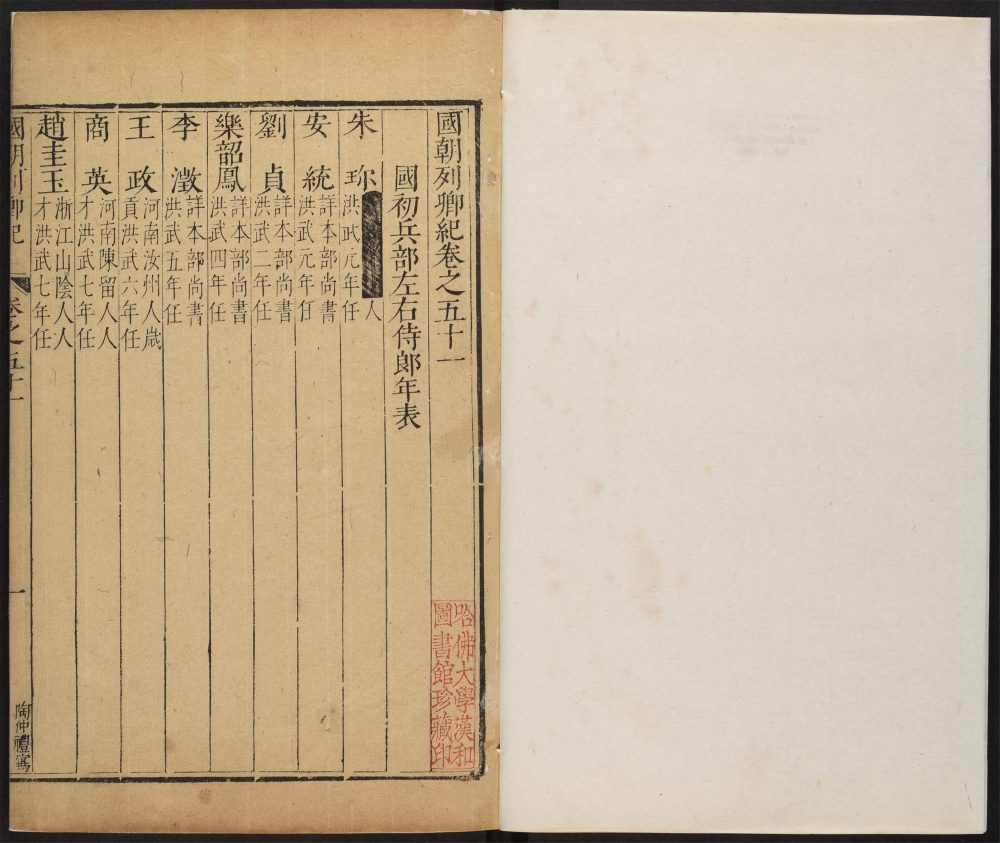 國朝列卿紀卷之五十一
國初兵部左右侍郎年表
朱珎 人洪武元年任
安統 詳本部尚書洪武元年任
劉貞 詳本部尚書洪武二年任
樂韶鳳 詳本部尚書洪武四年任
李澂 詳本部尚書洪武五年任
王政 河南汝州人歲貢洪武六年任
商英 河南陳留人人才洪武七年任
趙圭玉 浙江山陰人人才洪武七年任
國朝列卿紀 卷之五十一 一 陶仲禮寫
哈佛大學漢和
圖書館珍藏印